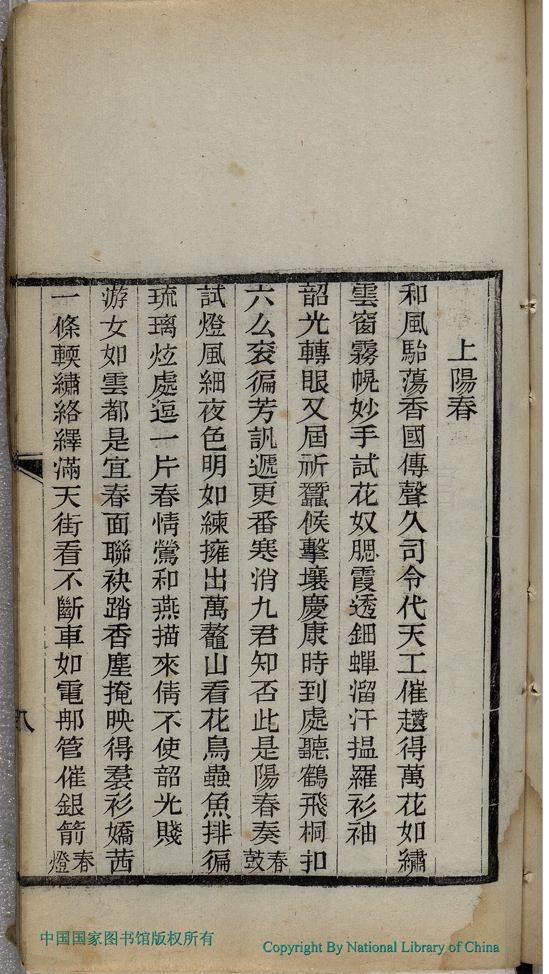 上陽春
和風駘蕩香國傳聲久司令代天工催趲得萬花如繡
雲窗霧幌妙手試花奴腮霞透鈿蟬溜汗搵羅衫袖
韶光轉眼又屆祈蠶候擊壤慶康時到處聽鶴飛桐扣
六么衮徧芳訊遞更番寒消九君知否此是陽春奏春鼓
試燈風細夜色明如練擁出萬鼇山看花鳥蟲魚排徧
琉璃炫處逗一片春情鶯和燕描來倩不使韶光賤
游女如雲都是宜春面聯袂踏香塵掩映得裠衫嬌茜
一條輭繡絡繹滿天街看不斷車如電那管催銀箭春燈
八
中国国家图书馆版权所有
Copyright By National Library of China